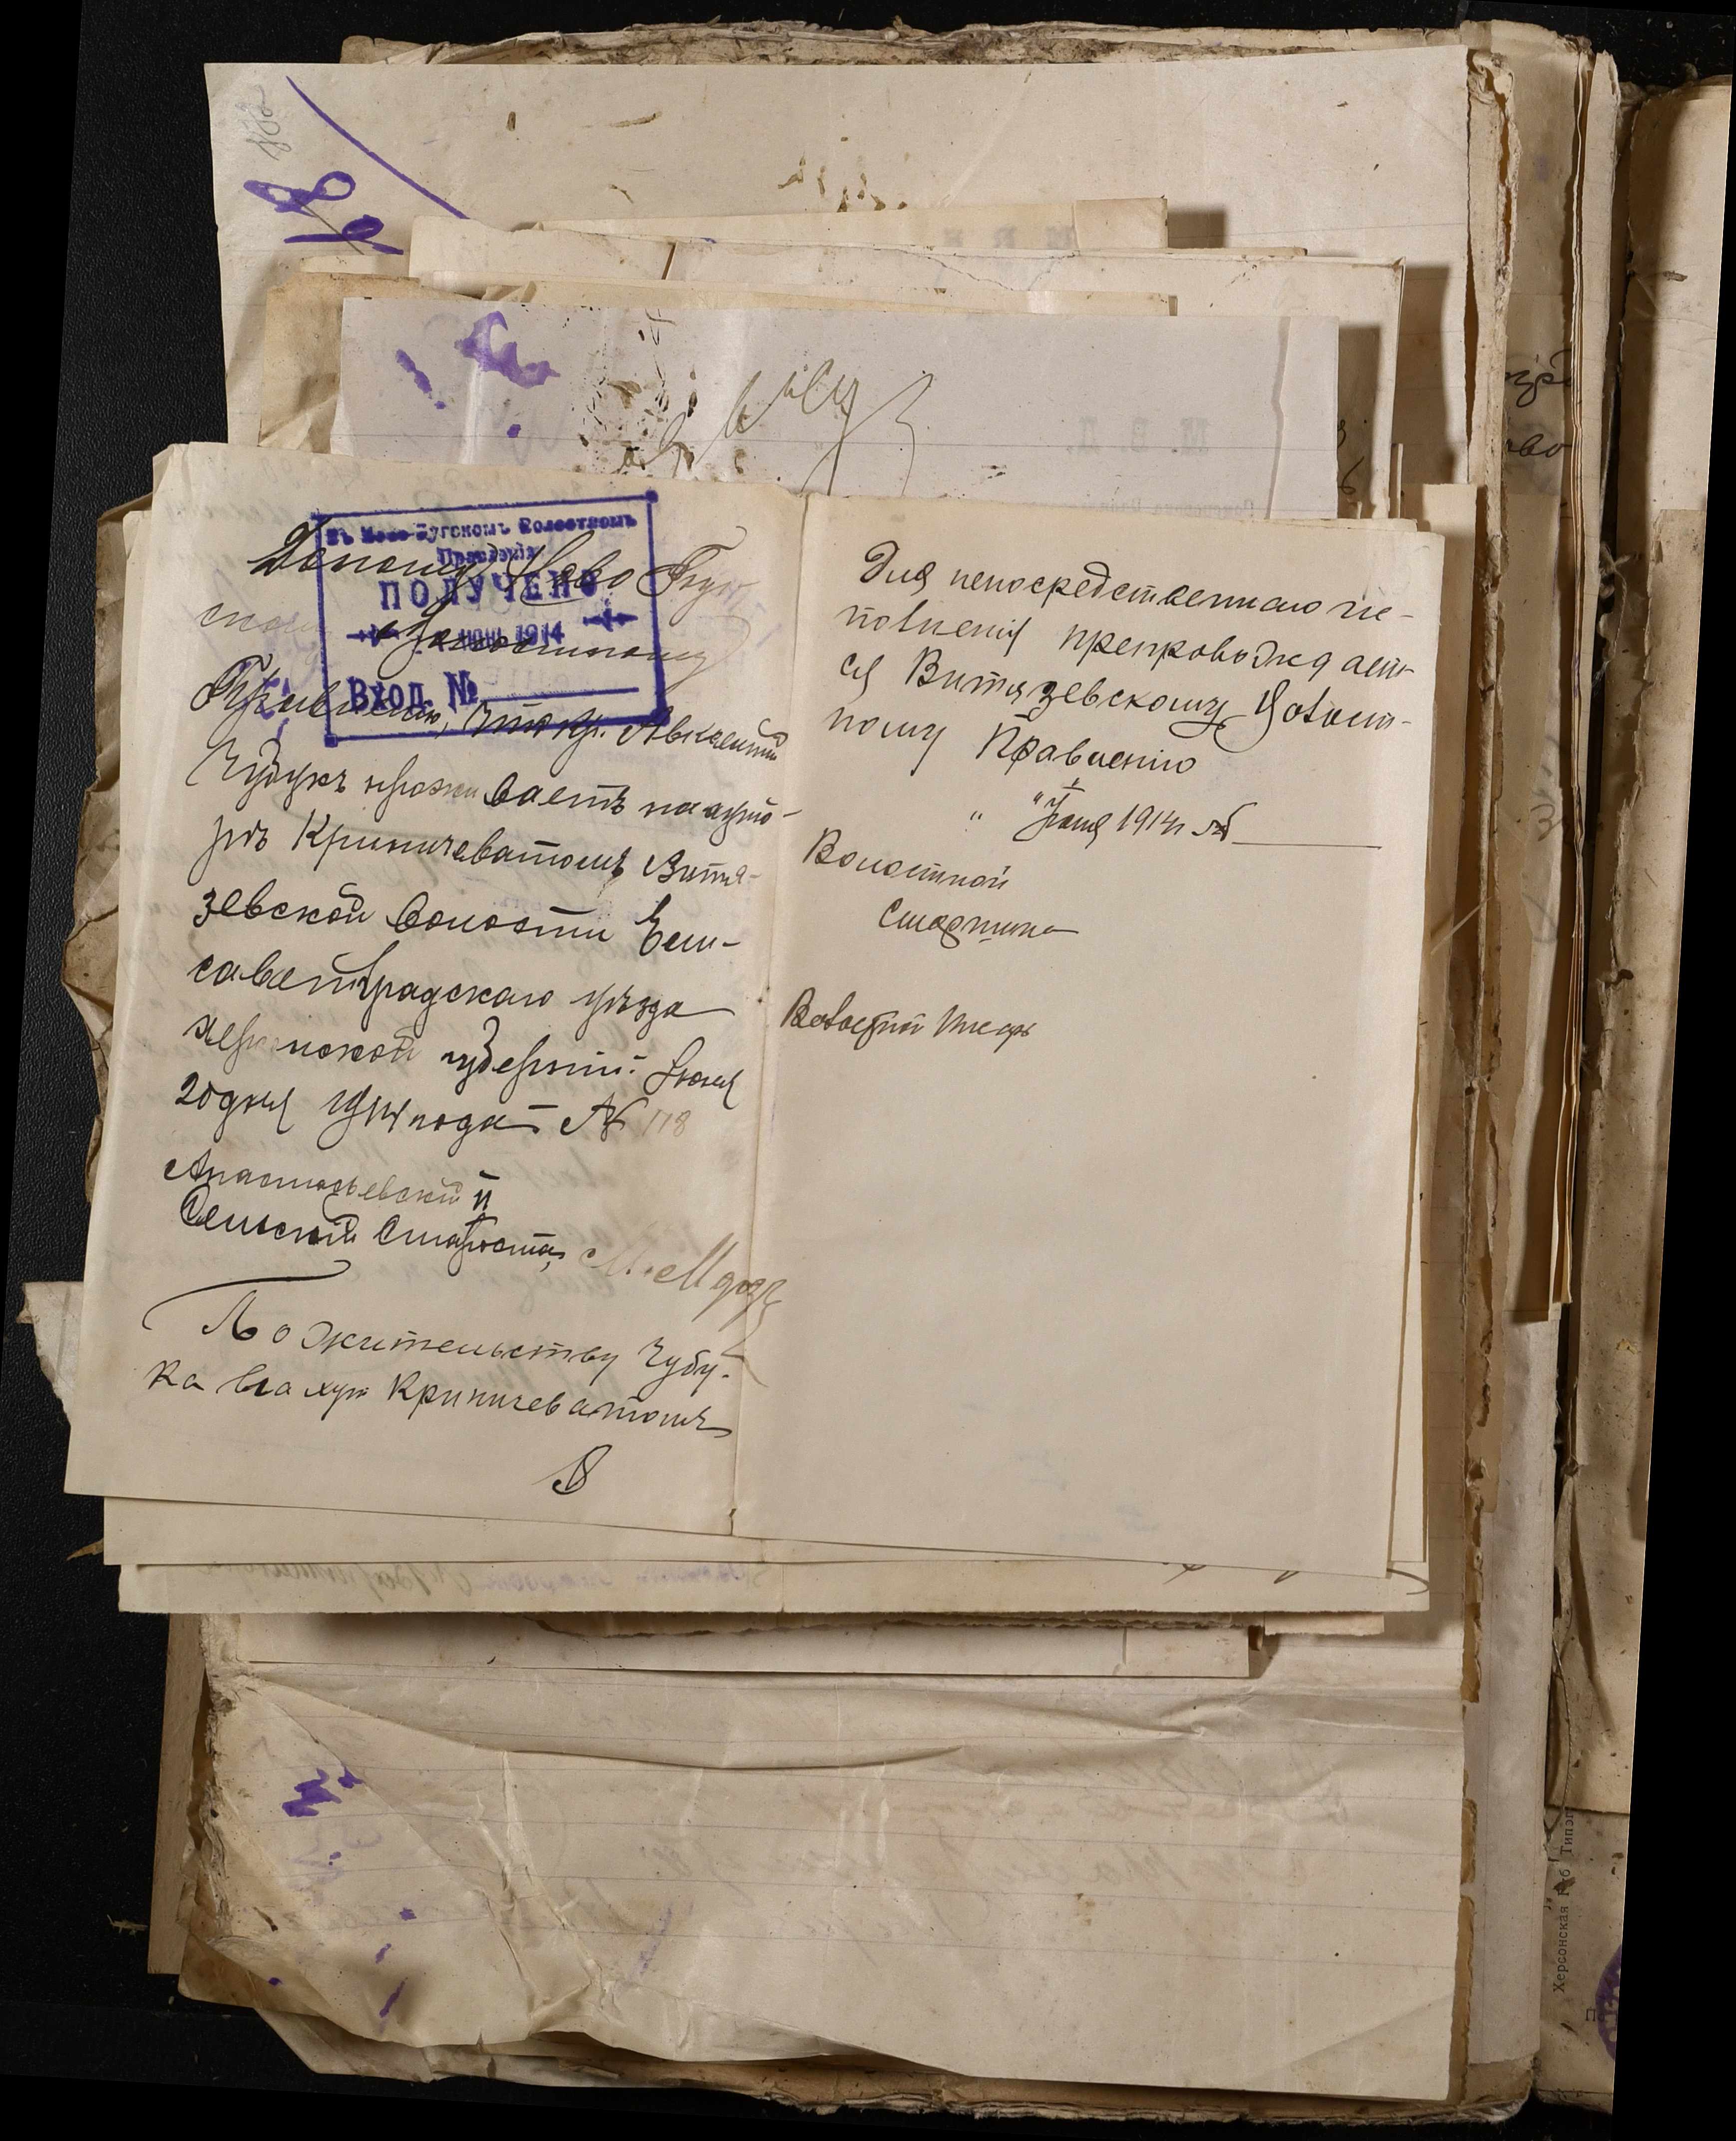 Въ Ново-Бугскомъ Волостномъ
Правленіи
ПОЛУЧЕНО
1914
Вход. №
Доношу Ново Буг
скому Волостному
Правленію, что кр. Авксентій
Чубукъ проживаетъ на хуто-
рѣ Криничеватомъ Витя-
зевской волости Ели-
саветградскаго уѣзда
херсонской губерніи. Іюня
2 одня 1914 года № 118
Анастасьевскій
Сельскій Староста,
По жительству Чубу-
ка въ хут Криничеватомъ
Для непосредственнаго ис-
полненія препровождает-
ся Витязевскому Волост-
ному Правленію
" " Іюня 1914 г №
Волостной
Старшина
Волостной Писарь
М. В. Д.
Херсонская Губ Типо